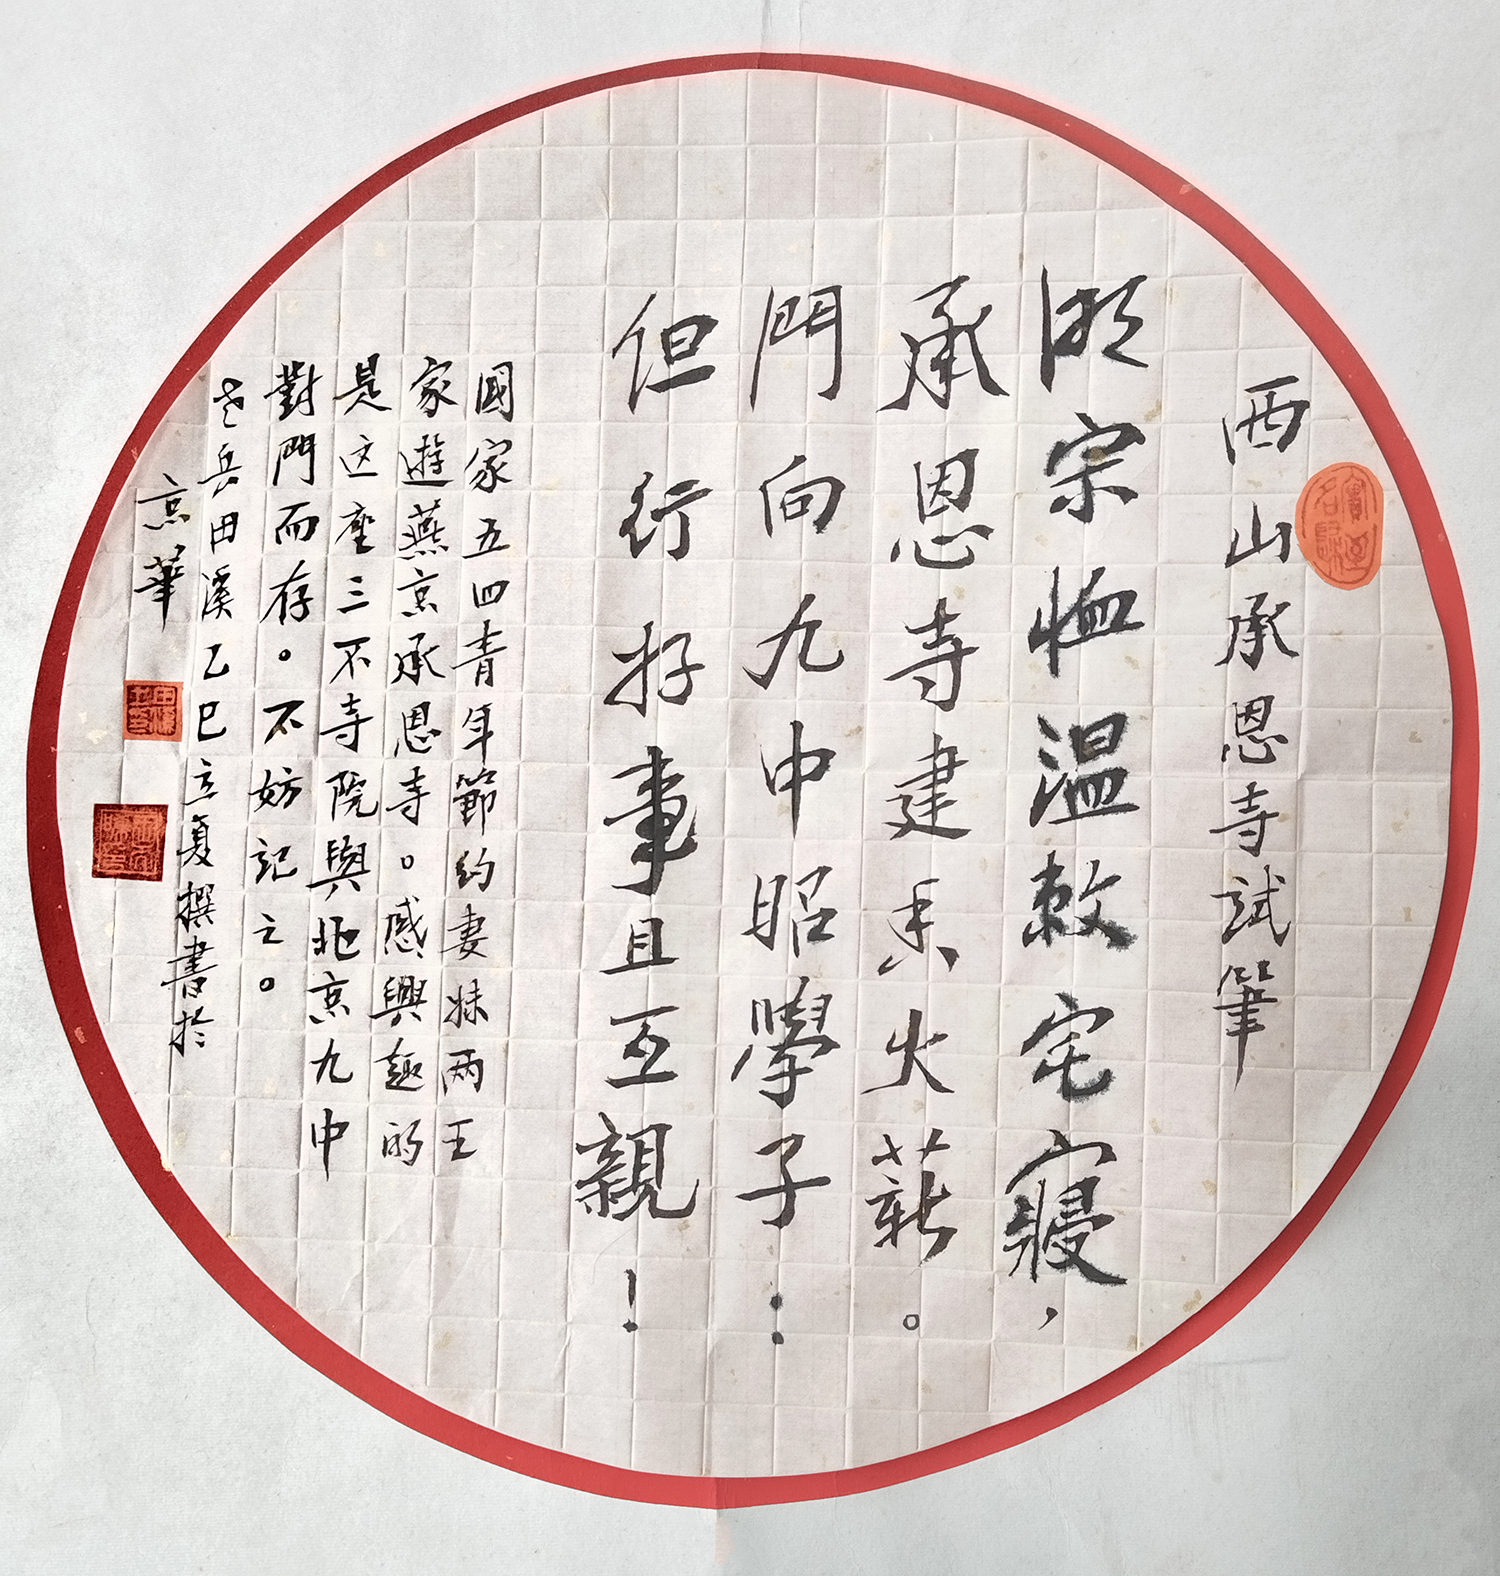 西山承恩寺試筆
明宗恤温敕宅寢，
承恩寺建香火薪。
門向九中昭學子：
但行好事且互親！
國家五四青年節約妻妹兩王
家遊燕京承恩寺。感興趣的
是这座三不寺院與北京九中
對門而存。不妨記之。
老兵田溪乙巳立夏撰書於
京華